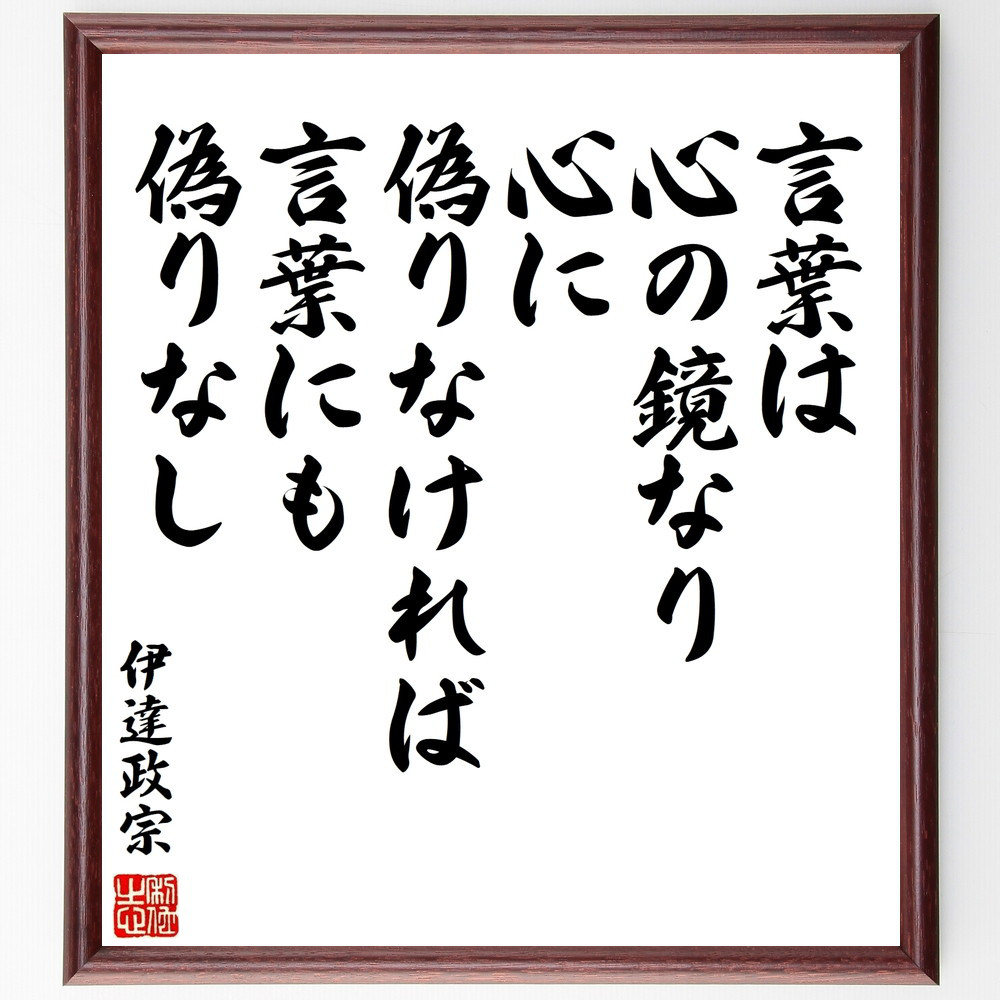 言葉は
心の鏡なり
心に
偽りなければ
言葉にも
偽りなし
伊達政宗